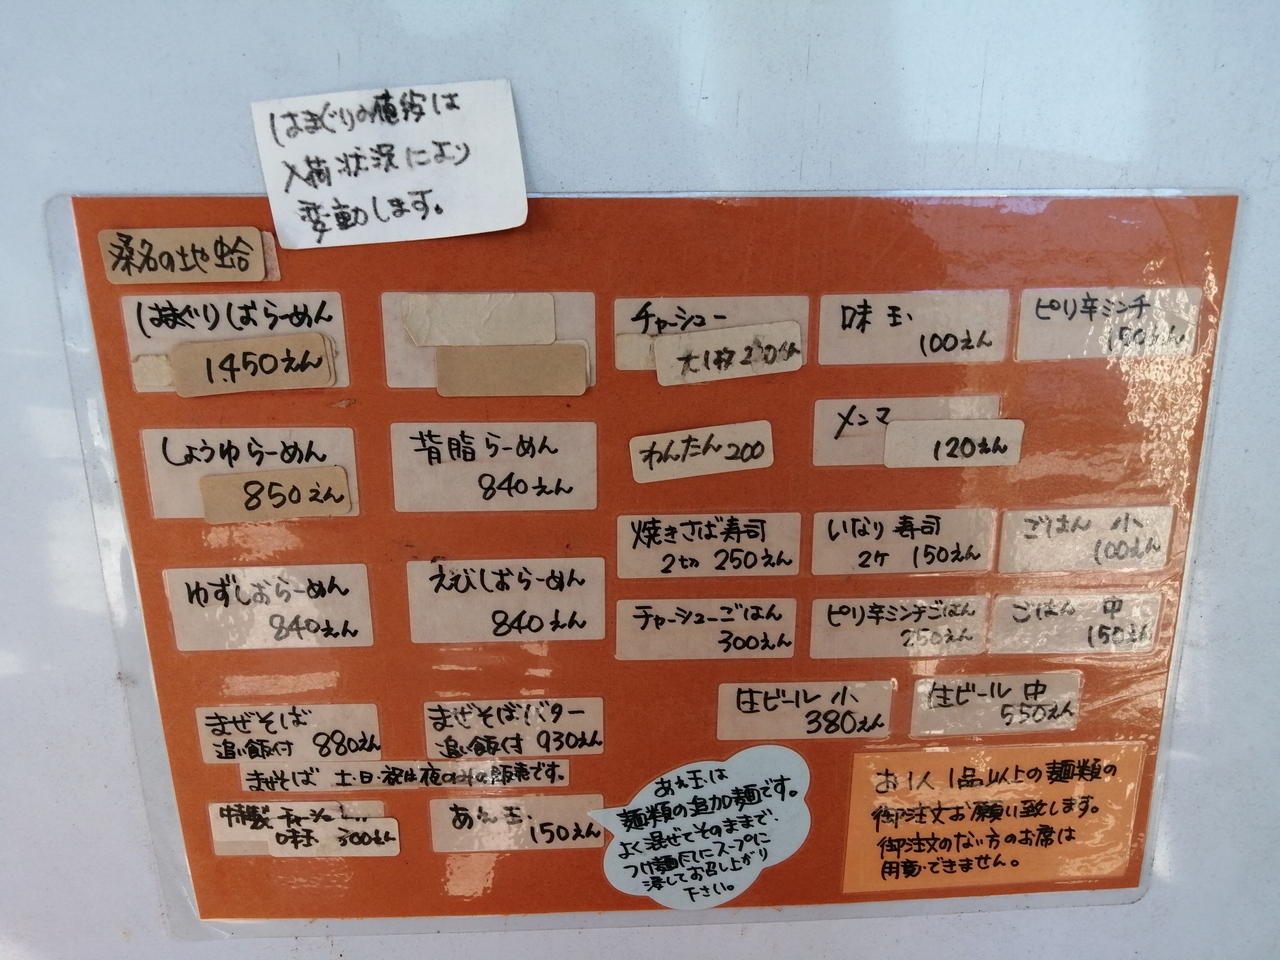 はまぐりの値段は
入荷状況により
変動します。
桑名の地蛤
はまぐりしおらーめん
1,450えん
チャーシュー
大1枚
味玉
100えん
ピリ辛ミンチ
150えん
しょうゆらーめん
850えん
背脂らーめん
840えん
わんたん200
メンマ
120えん
焼きさば寿司
2切 250えん
いなり寿司
2ケ 150えん
ごはん 小
100えん
ゆずしおらーめん
840えん
えびしおらーめん
840えん
チャーシューごはん
300えん
ピリ辛ミンチごはん
250えん
ごはん 中
150えん
まぜそば
追い飯付 880えん
まぜそばバター
追い飯付 930えん
生ビール 小
380えん
生ビール 中
550えん
まぜそば 土・日・祝は夜のみの販売です。
特製 チャーシュー
味玉 300えん
あえ玉
150えん
あえ玉は
麺類の追加麺です。
よく混ぜてそのままで、
つけ麺風にスープに
浸してお召し上がり
下さい。
お1人1品以上の麺類の
御注文お願い致します。
御注文のない方のお席は
用意できません。